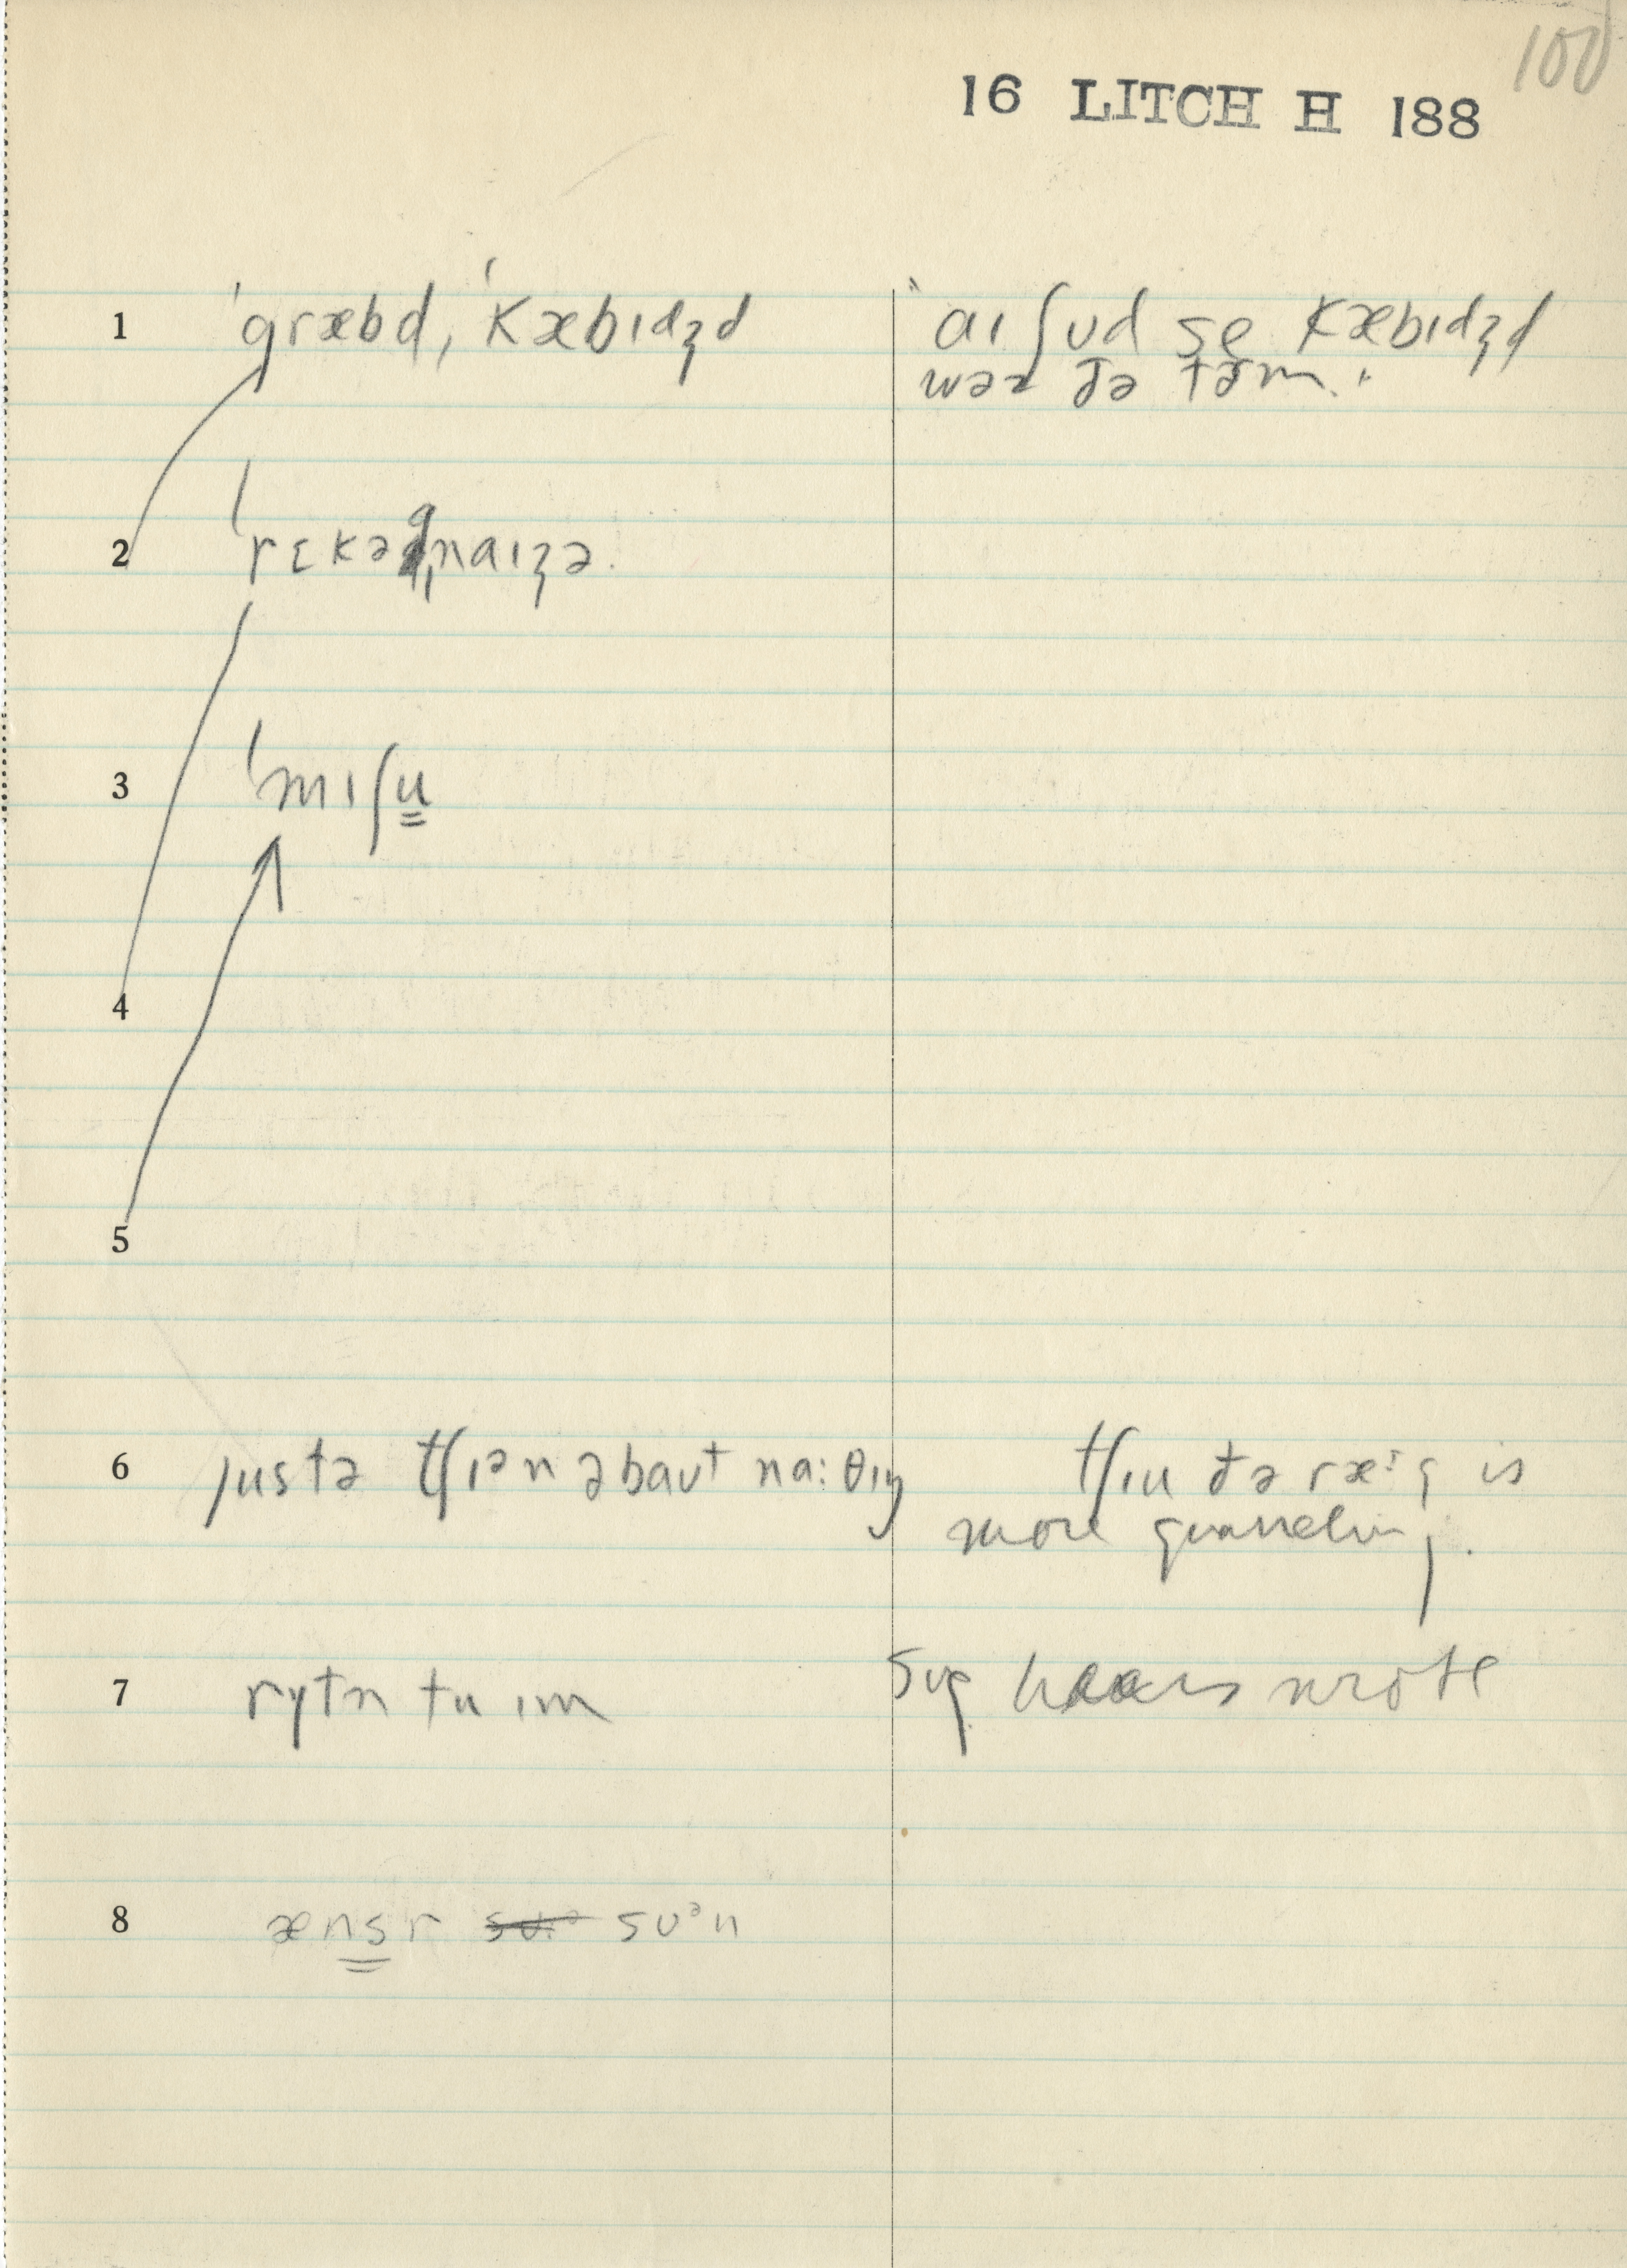 100
16 LITCH H 188
1 ˈgræbd, ˈkæbɪdʒd
aɪ ʃʊd se kæbɪdʒd
wəz ðə tɜm.
2 ˈrɛkəgˌnaɪʒə.
3 ˈmɪʃu
4
5
6 justə tʃɪᵊn əbaʊt na:θɪŋ
tʃɪu ðə ræ:g is
more quarreling.
7 rytn tu ɪm
wrote
8 ænsr sʊᵊn